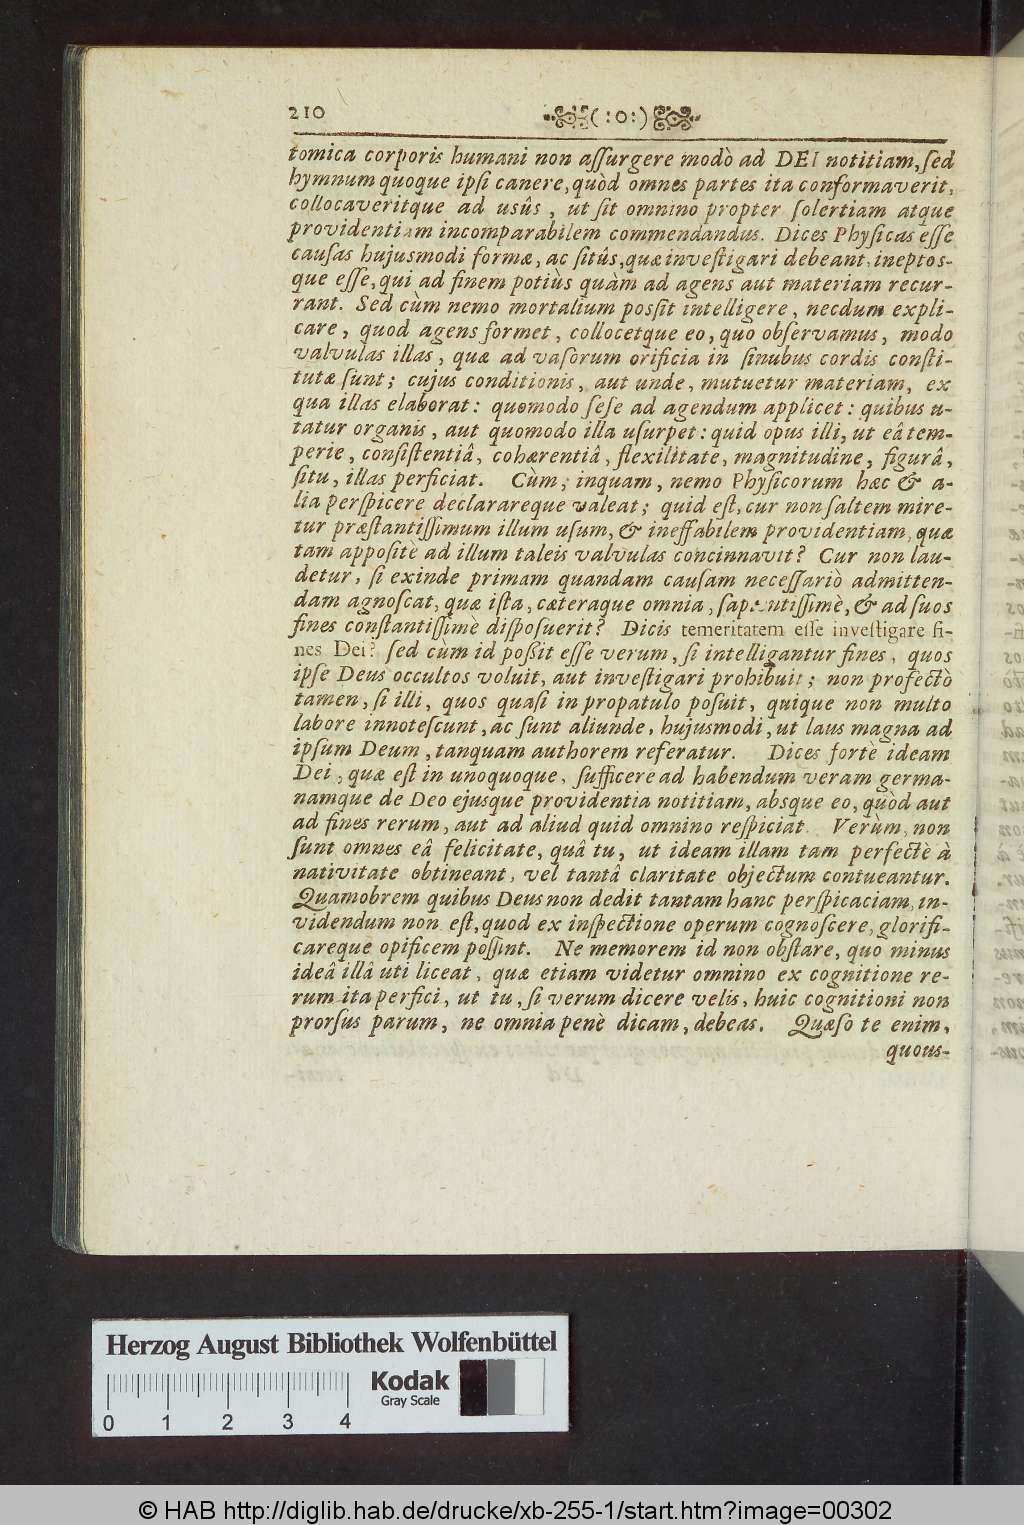 210 (:o:)
tomica corporis humani non aſſurgere modò ad DEI notitiam, ſed
hymnum quoque ipſi canere, quòd omnes partes ita conformaverit,
collocaveritque ad usûs, ut ſit omnino propter ſolertiam atque
providentiam incomparabilem commendandus. Dices Phyſicas eſſe
cauſas hujusmodi formæ, ac ſitûs, quæ inveſtigari debeant, ineptos-
que eſſe, qui ad finem potiùs quàm ad agens aut materiam recur-
rant. Sed cùm nemo mortalium poſſit intelligere, necdum expli-
care, quod agens formet, collocetque eo, quo obſervamus, modo
valvulas illas, quæ ad vaſorum orificia in ſinubus cordis conſti-
tutæ ſunt; cujus conditionis, aut unde, mutuetur materiam, ex
qua illas elaborat: quomodo ſeſe ad agendum applicet: quibus u-
tatur organis, aut quomodo illa uſurpet: quid opus illi, ut eâ tem-
perie, conſiſtentiâ, cohærentiâ, flexilitate, magnitudine, figurâ,
ſitu, illas perficiat. Cùm, inquam, nemo Phyſicorum hæc & a-
lia perſpicere declarareque valeat; quid eſt, cur non ſaltem mire-
tur præſtantiſſimum illum uſum, & ineffabilem providentiam, quæ
tam appoſitè ad illum taleis valvulas concinnavit? Cur non lau-
detur, ſi exinde primam quandam cauſam neceſſariò admitten-
dam agnoſcat, quæ iſta, cæteraque omnia, ſapientiſſimè, & ad ſuos
fines conſtantiſſimè diſpoſuerit? Dicis temeritatem eſſe inveſtigare fi-
nes Dei? ſed cùm id poßit eſſe verum, ſi intelligantur fines, quos
ipſe Deus occultos voluit, aut inveſtigari prohibuit; non profectò
tamen, ſi illi, quos quaſi in propatulo poſuit, quique non multo
labore innoteſcunt, ac ſunt aliunde, hujusmodi, ut laus magna ad
ipſum Deum, tanquam authorem referatur. Dices fortè ideam
Dei, quæ eſt in unoquoque, ſufficere ad habendum veram germa-
namque de Deo ejusque providentia notitiam, absque eo, quòd aut
ad fines rerum, aut ad aliud quid omnino reſpiciat. Verùm, non
ſunt omnes eâ felicitate, quâ tu, ut ideam illam tam perfectè à
nativitate obtineant, vel tantâ claritate objectum contueantur.
Quamobrem quibus Deus non dedit tantam hanc perſpicaciam, in-
videndum non eſt, quod ex inſpectione operum cognoſcere, glorifi-
careque opificem poſſint. Ne memorem id non obſtare, quo minus
ideâ illâ uti liceat, quæ etiam videtur omnino ex cognitione re-
rum ita perfici, ut tu, ſi verum dicere velis, huic cognitioni non
prorſus parum, ne omnia penè dicam, debeas. Quæſo te enim,
quous-
Herzog August Bibliothek Wolfenbüttel
Kodak
Gray Scale
0 1 2 3 4
© HAB http://diglib.hab.de/drucke/xb-255-1/start.htm?image=00302